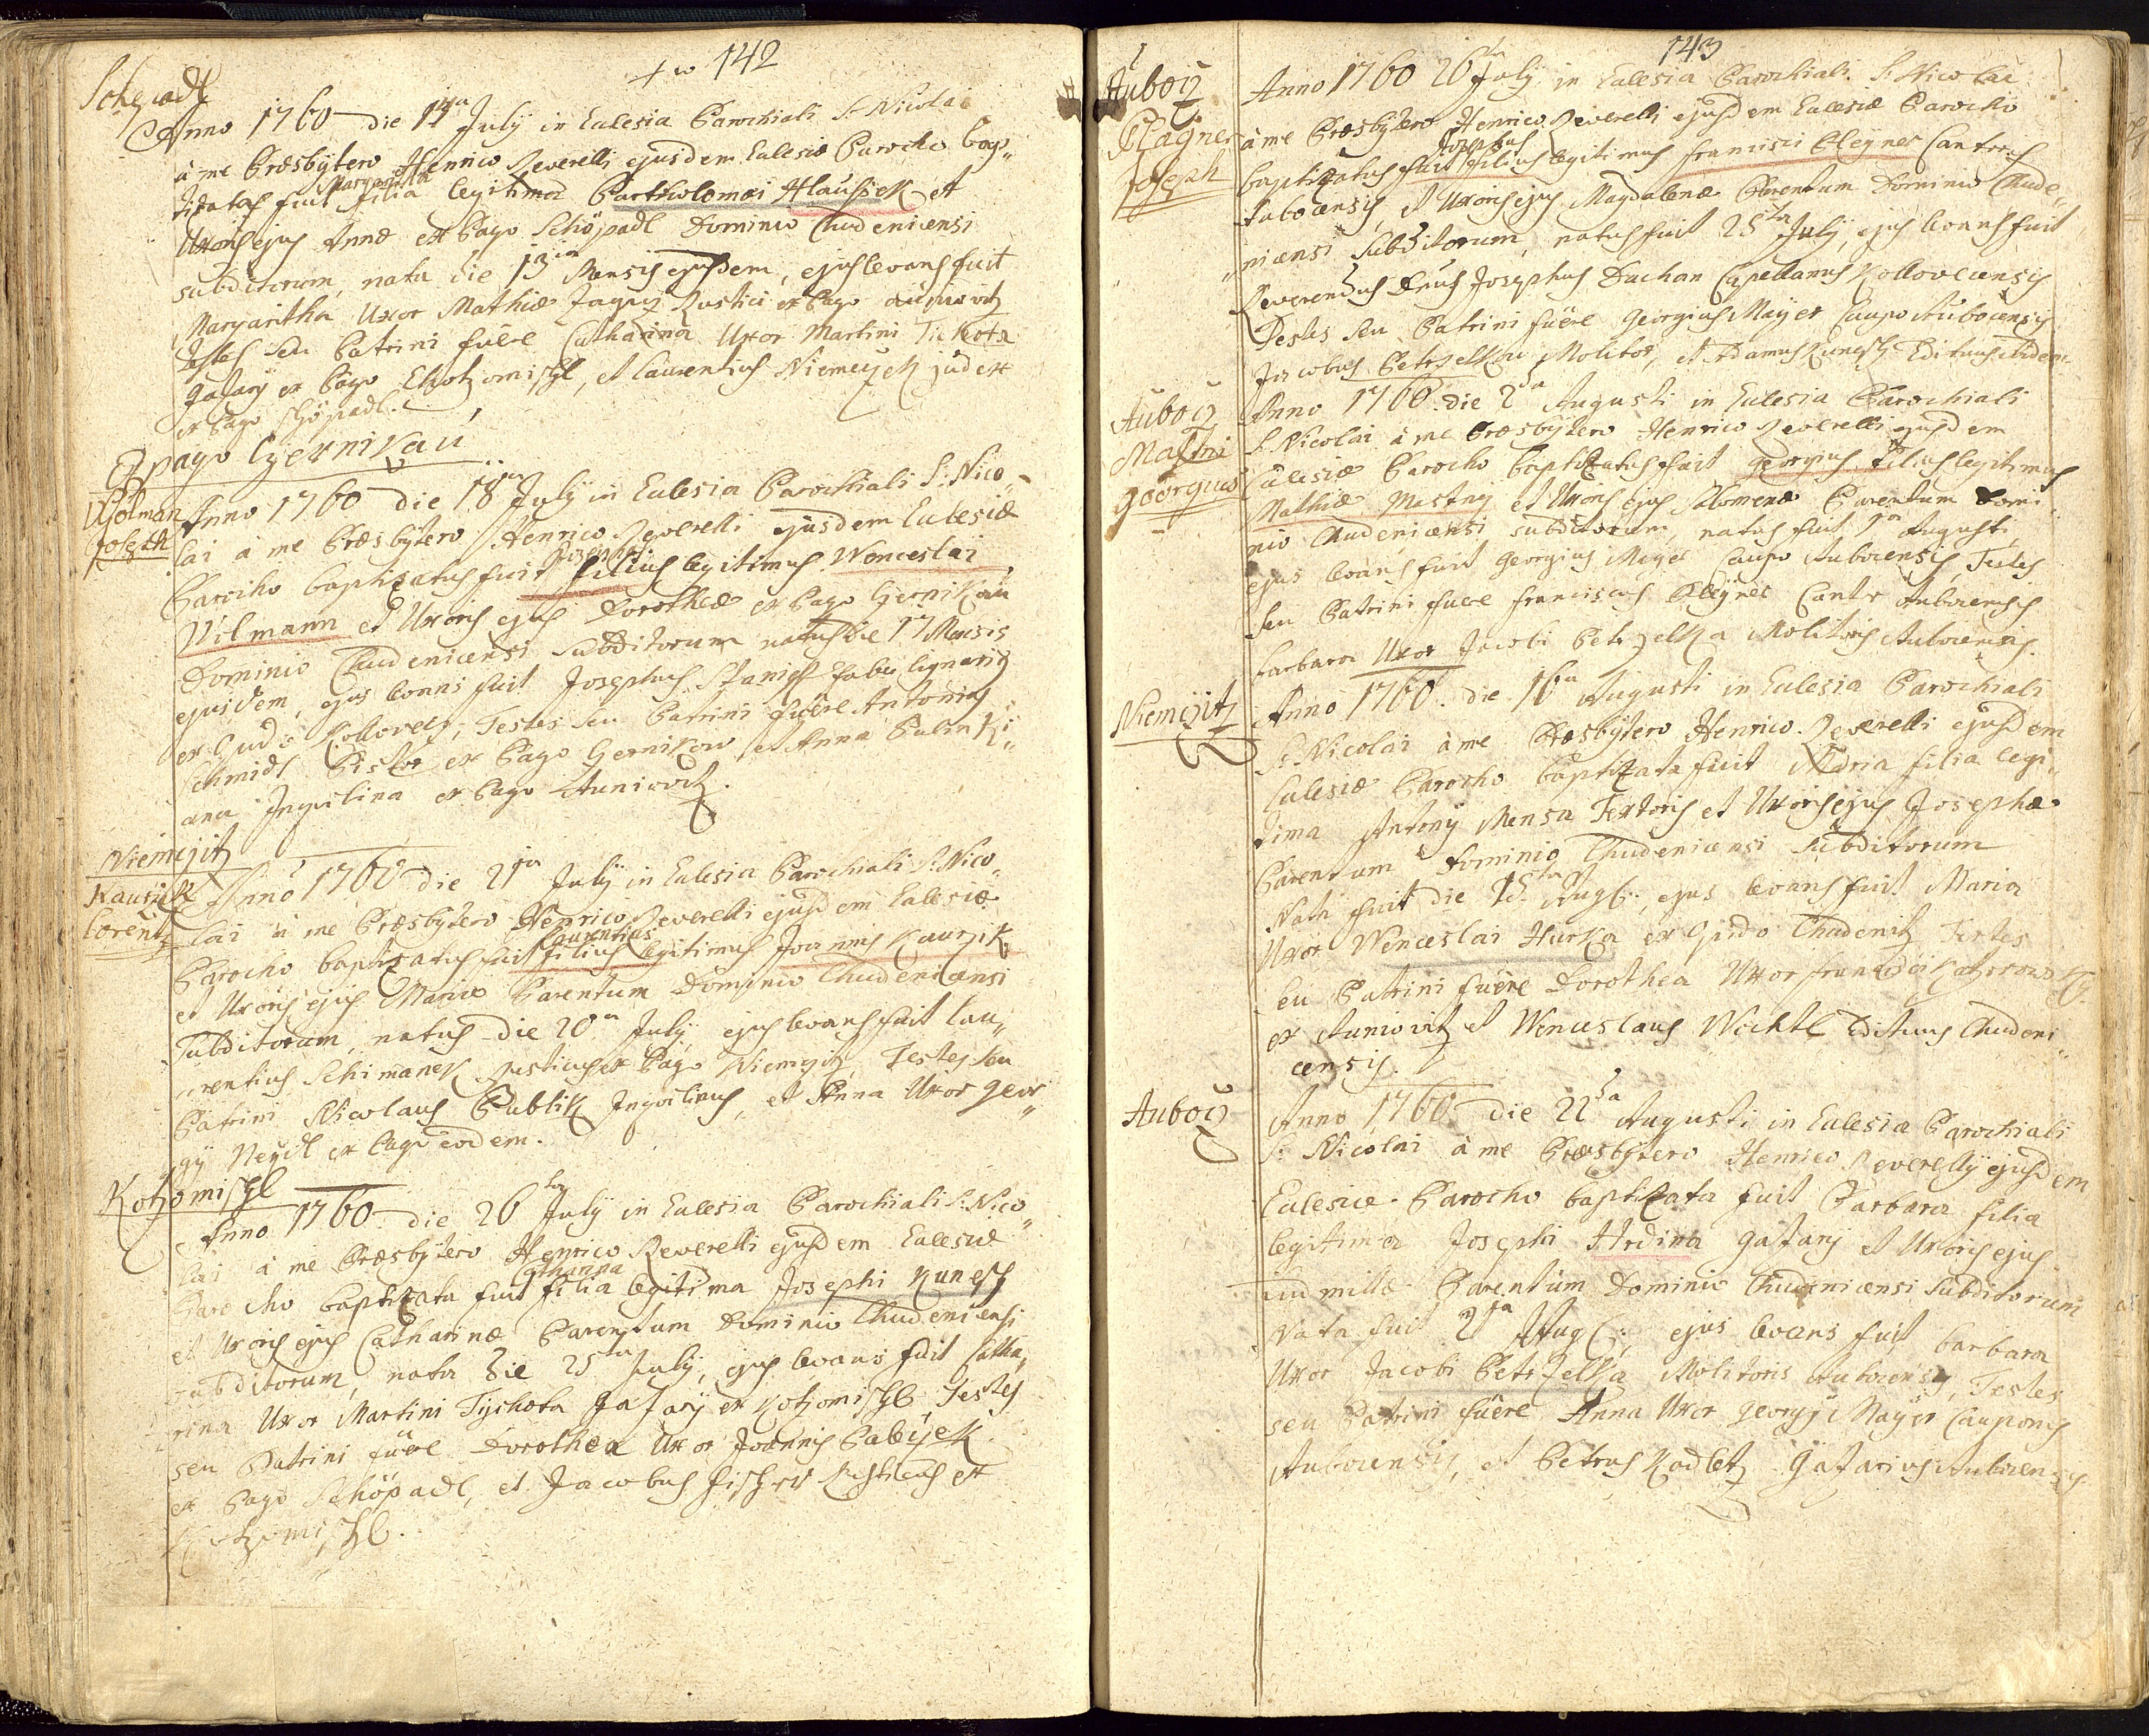 142
Schepadl
Anno 1760 die 14a July in Eclesia Parochiali S. Nicolai
à me Præsbytero Henrico Reverelli ejusdem Eclesiæ Parocho bap„
tizata fuit Margaritha filia legitima Bartholomæi Hlaussek et
Uxoris ejus Annæ ex Pago Schöpadl Dominio Chudenicensi
subditorum, nata die 13tia Mensis ejusdem, ejus levans fuit
Margaritha Uxor Mathiæ Rustici ex Pago
Testes seu Patrini fuêre Catharina Uxor Martini Tichota
Gazarÿ ex Pago Khotzomischl, et Laurentius Niemeczek judex
ex Pago Schöpadl.
Ex pago Czernikau
Wolman
Joseph
Anno 1760 die 18va July in Eclesia Parochiali S: Nico„
lai à me Præsbytero Henrico Reverelli ejusdem Eclesiæ
Parocho baptizatus fuit Josephus filius legitimus Wenceslai
Wilmann et Uxoris ejus Dorotheæ ex Pago Czernikau
Dominio Chudenicensi subditorum natus die 17 Mensis
ejusdem, ejus levans fuit Josephus Staniek Faber lignarius
ex Oppido Kollovecz, Testes seu Patrini fuêre Antonius
Schmidt Pistor ex Pago Czernikow et Anna Palinki„
ana Inquilina ex Pago Auniowitz.
Niemczitz
Kautzik
Lorentz
Anno 1760 die 21ma July in Eclesia Parochiali S: Nico„
lai à me Præsbytero Henrico Reverelli ejusdem Eclesiæ
Parocho baptizatus fuit Laurentius filius legitimus Joannis Kauzik
et Uxoris ejus Mariæ Parentum Dominio Chudenicensi
Subditorum, natus die 20ma July ejus levans fuit Lau„
rentius Schimanek Rusticus ex Pago Niemczitz, Testes seu
Patrini Nicolaus Bublik Inquilinus, et Anna Uxor Geor„
gÿ Neydl ex Pago eodem.
Kotzomischl
Anno 1760 die 26ta July in Eclesia Parochiali S: Nico„
lai à me Præsbytero Henrico Reverelli ejusdem Eclesiæ
Parocho baptizata fuit Catharina filia legitima Josephi Kunesch
et Uxoris ejus Catharinæ Parentum Dominio Chudenicensi
subditorum, nata die 25ta July, ejus levans fuit Catha„
rina Uxor Martini Tychota Gazarÿ ex Kotzomischl Testes
seu Patrini fuêre Dorothea Uxor Joannis Babÿek
ex Pago Schöpadl, et Jacobus Fischer Rusticus ex
Kotzomischl.
143
Auboÿ
Plagner
Joseph
Anno 1760 26ta July in Eclesia Parochiali S. Nicolai
à me Præsbytero Henrico Reverelli ejusdem Eclesiæ Parocho
baptizatus fuit Josephus filius legitimus Francisci Pleyner Cantoris
Aubocensis, et Uxoris ejus Magdalenæ Parentum Dominio Chude„
nicensi Subditorum, natus fuit 25ta July, ejus levans fuit
Reverendus Dnus Josephus Duchan Capellanus Kollovecensis
Testes seu Patrini fuêre Georgius Mayer Caupo Aubocensis
Jacobus Petrzelka Molitor, et Adamus Kunesch Edituus ibidem
Auboÿ
Mastni
Georgius
Anno 1760 die 2da Augusti in Eclesia Parochiali
S. Nicolai à me Præsbytero Henrico Reverelli ejusdem
Eclesiæ Parocho baptizatus fuit Georgius filius legitimus
Mathiæ Mastny et Uxoris ejus Salomenæ Parentum Domi
nio Chudenicensi subditorum, natus fuit 1ma Augusti,
ejus levans fuit Georgius Mayer Caupo Aubocensis, Testes
seu Patrini fuere Franciscus Pleyner Cantor Aubocensis
Barbara Uxor Jacobi Petrzelka Molitoris Aubocensis.
Niemczitz
Anno 1760 die 16ta Augusti in Eclesia Parochiali
S: Nicolai à me Præsbytero Henrico Reverelli ejusdem
Eclesiæ Parocho baptizata fuit Maria filia legi„
tima Antony Mensa Textoris et Uxoris ejus Josephæ
Parentum Dominio Chudenicensi subditorum
Nata fuit die 15ta Augti, ejus levans fuit Maria
Uxor Wenceslai Hurka ex Opido Chudenitz Testes
seu Patrini fuêre Dorothea Uxor Francisci
ex Auniovitz et Wenceslaus Wichtl Edituus Chudeni„
censis.
Auboÿ
Anno 1760 die 22da Augusti in Eclesia Parochiali
S: Nicolai à me Præsbytero Henrico Reverellÿ ejusdem
Eclesiæ Parocho baptizata fuit Barbara filia
legitima Josephi Hrdina Gazarÿ et Uxoris ejus
Ludmillæ Parentum Dominio Chudenicensi Subditorum
Nata fuit 21ma Augti, ejus levans fuit Barbara
Uxor Jacobi Petrzelka Molitoris Aubocensis, Testes
seu Patrini fuêre Anna Uxor Georgÿ Mayer Cauponis
Aubocensis, et Petrus Kadletz Gazarius Aubocensis